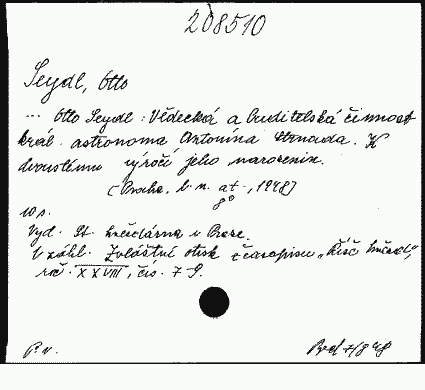 208510
Seydl, Otto
... Otto Seydl: Vědecká a buditelská činnost
král. astronoma Antonína Strnada. K
dvoustému výročí jeho narozenin.
(Praha, b. n. a t., 1948)
8°
10 s.
Vyd. St. hvězdárna v Praze.
V záhl. Zvláštní otisk z časopisu „Říše hvězd",
roč. XXVIII, čís. 7-9.
P. v.
7/8 48